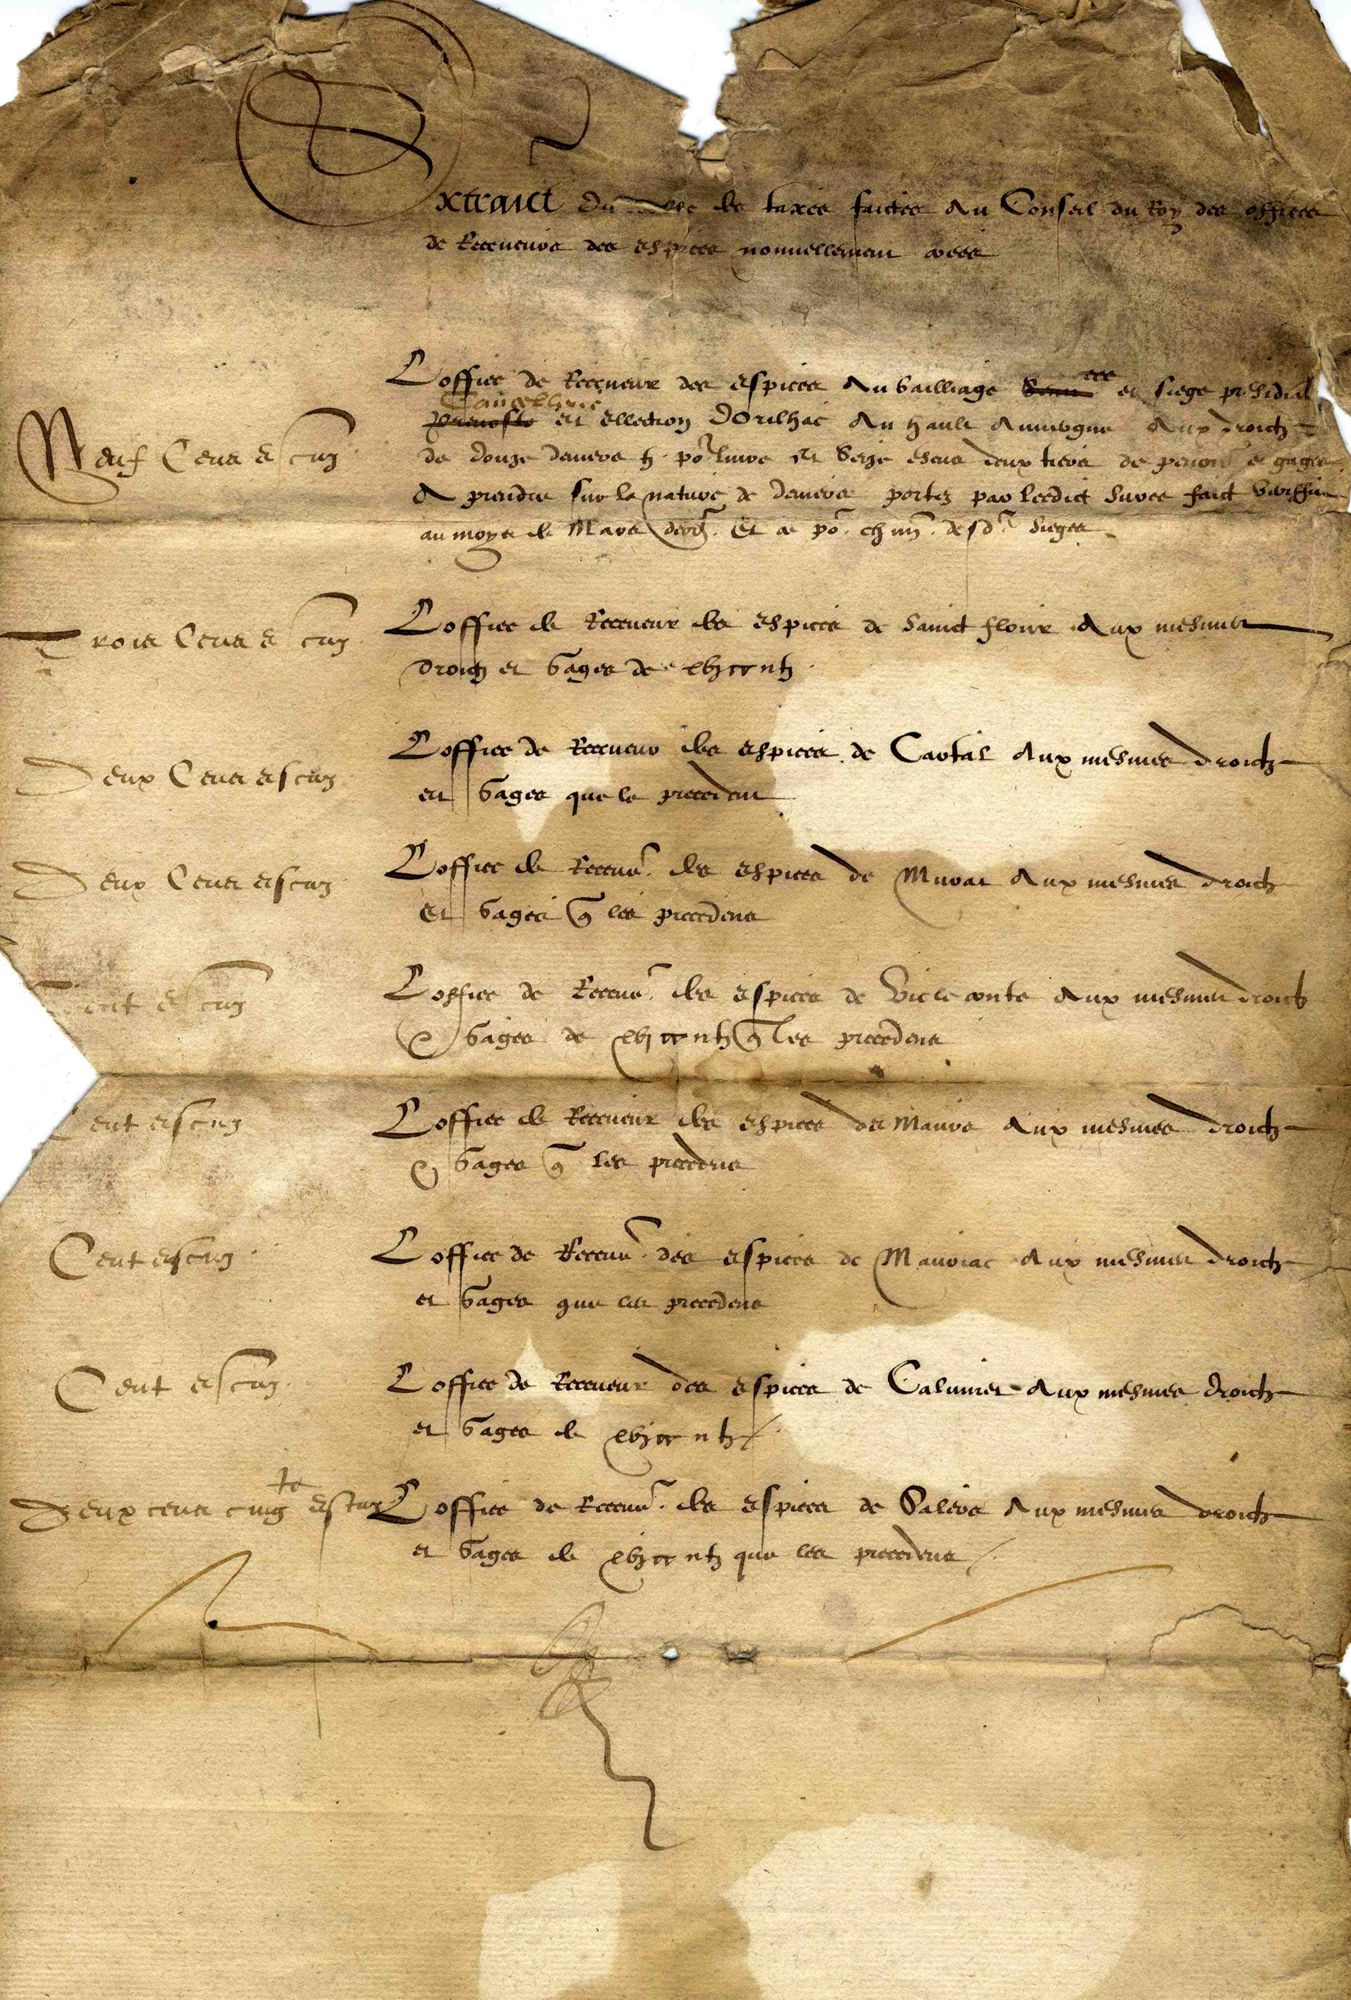 Extraict du des taxes faictes au Conseil du Roy des offices
de Receveurs des espices nouvellement crees
Neuf Cens escuz
L'office de Receveur des espices au bailliage et siege presidial
Chancellerie
prevoste et ellection DOrilhac au hault Auvergne aux droictz
de douze deniers pour livre et seize escus deux tiers de gages
A prendre sur la nature de deniers portez par ledict
au moys de Mars sieges
Trois Cens escuz
L'office de Receveur des espices de Sainct flour aux mesmes
droictz et gages de xvj
Deux Cens escuz
L'office de Receveur des espices de Carlat aux mesmes droictz
et gages que le precedent
Deux Cens escuz
L'office de Recevr des espices de Murat aux mesmes droictz
Et gages q les precedens
Cent escuz
L'office de Recevr des espices de Vic le conte aux mesmes droictz
& gages de xvj q les precedens
Cent escuz
L'office de Receveur des espices de Maurs aux mesmes droictz
& gages q les precedens
Cent escuz
L'office de Recevr des espices de Mauriac aux mesmes droictz
et gages que les precedens
Cent escuz
L'office de Receveur des espices de Calvinet aux mesmes droictz
et gages de xvj
Deux cens cinqte escuz
L'office de Recevr des espices de Salers aux mesmes droictz
et gages de xvj que les precedens